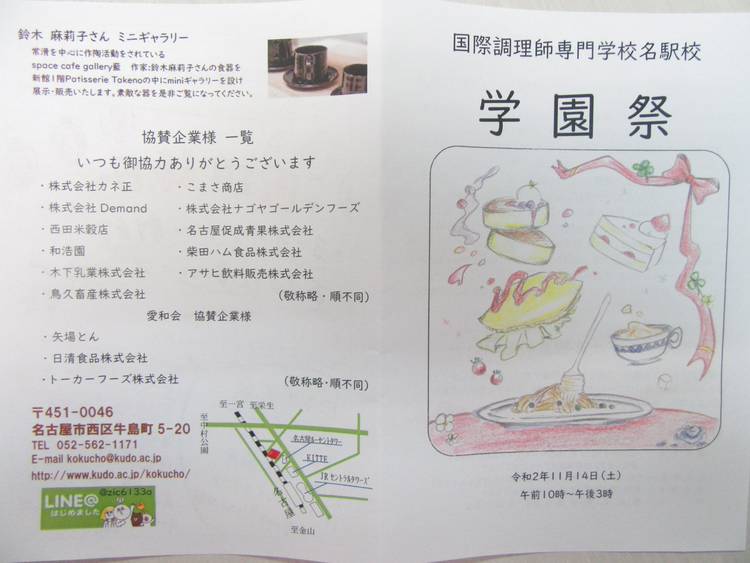 鈴木 麻莉子さん ミニギャラリー
常滑を中心に作陶活動をされている
space cafe gallery藍　作家:鈴木麻莉子さんの食器を
新館1階Patisserie Takenoの中にminiギャラリーを設け
展示・販売いたします。素敵な器を是非ご覧になってください。
協賛企業様 一覧
いつも御協力ありがとうございます
・株式会社カネ正
・こまさ商店
・株式会社Demand
・株式会社ナゴヤゴールデンフーズ
・西田米穀店
・名古屋促成青果株式会社
・和浩園
・柴田ハム食品株式会社
・木下乳業株式会社
・アサヒ飲料販売株式会社
・鳥久畜産株式会社
(敬称略・順不同)
愛和会　協賛企業様
・矢場とん
・日清食品株式会社
・トーカーフーズ株式会社
(敬称略・順不同)
〒451-0046
名古屋市西区牛島町 5-20
TEL 052-562-1171
E-mail kokucho@kudo.ac.jp
http://www.kudo.ac.jp/kokucho/
LINE@
@zic6133a
はじめました
至一宮
至栄生
至中村公園
名古屋ルーセントタワー
KITTE
JRセントラルタワーズ
名古屋
至金山
国際調理師専門学校名駅校
学園祭
令和2年11月14日(土)
午前10時～午後3時